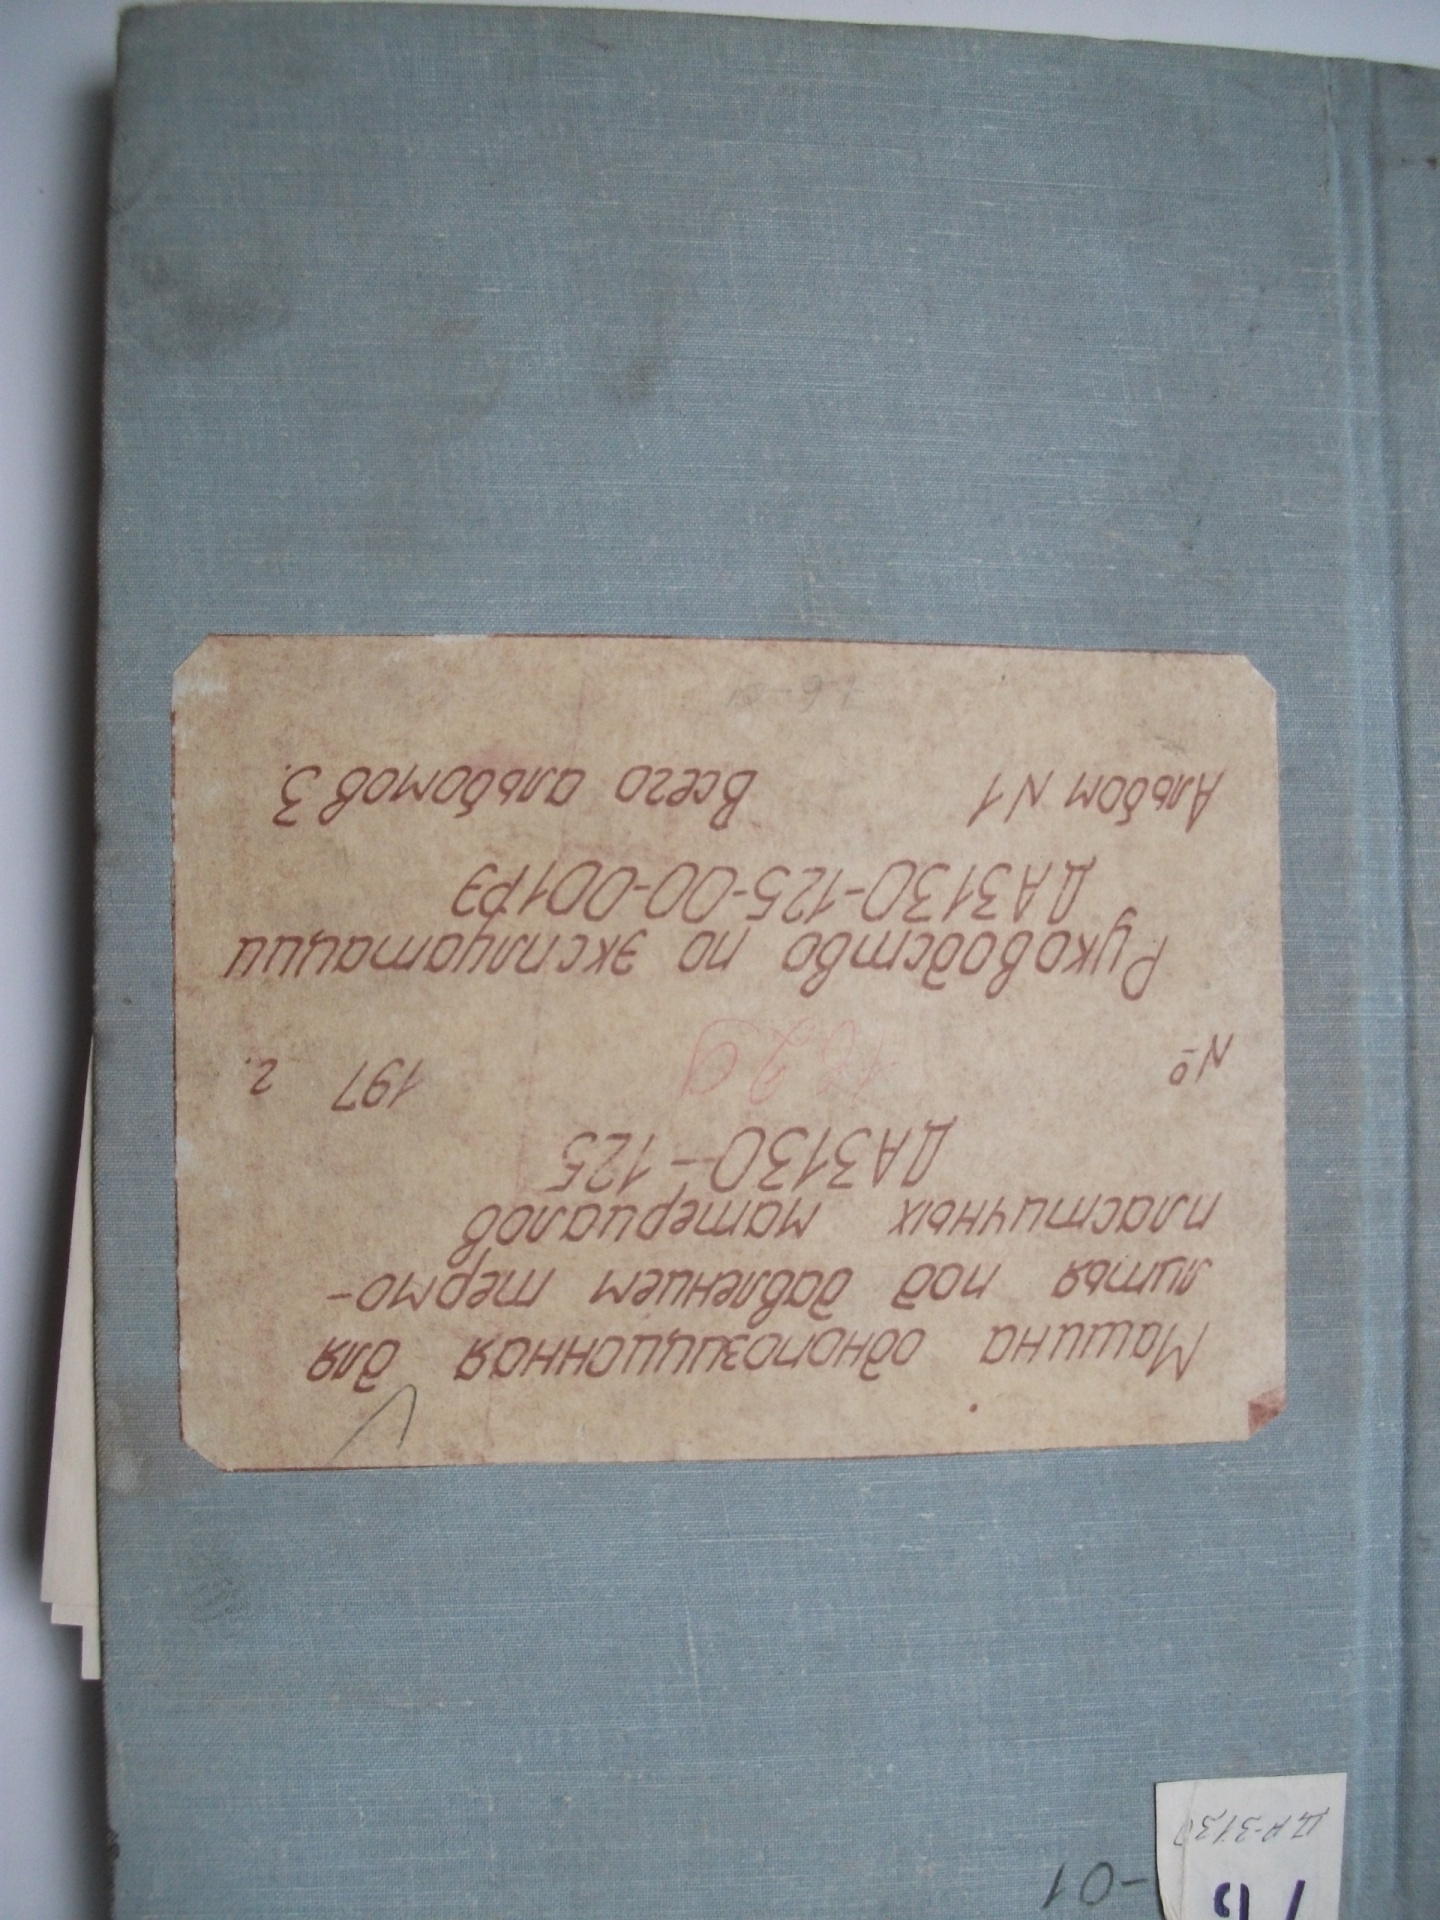 Машина однопозиционная для
литья под давлением термо-
пластичных материалов
ДА3130-125
№ 197 г.
Руководство по эксплуатации
ДА3130-125-00-001РЭ
Альбом N1 Всего альбомов 3.
-01
ДА-3130